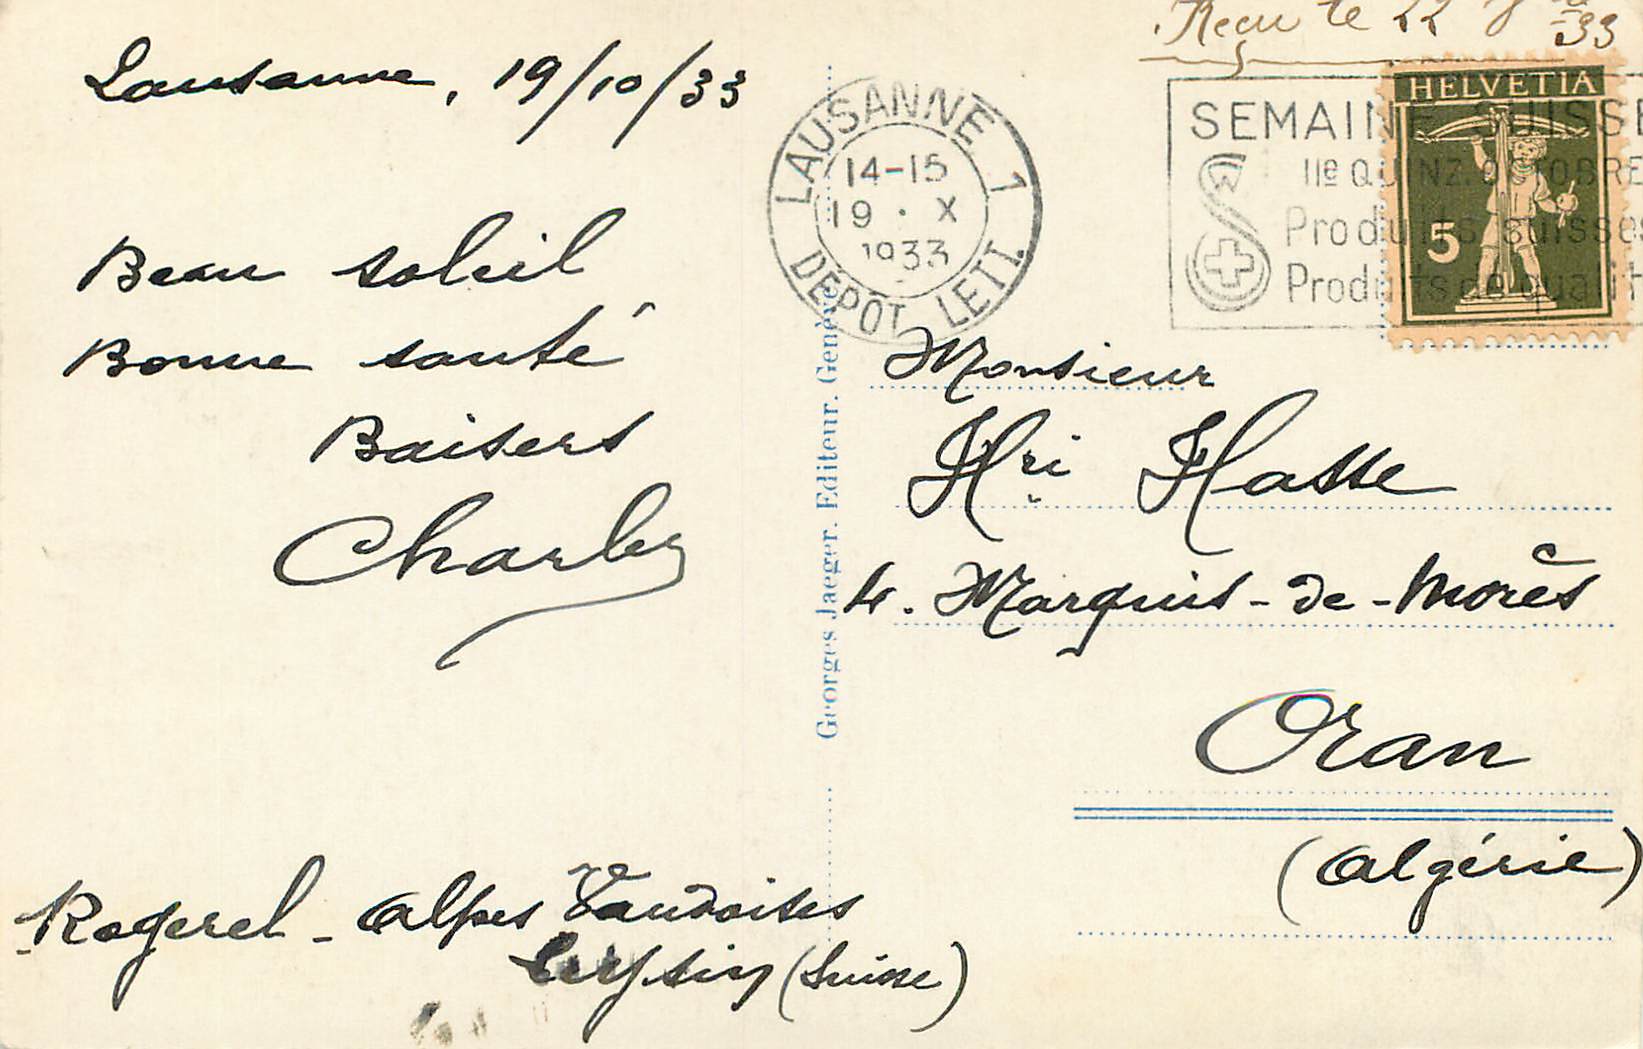 Reçu le 22 33
Lausanne, 19/10/33
Beau soleil
Bonne santé
Baisers
Charley
Alpes Vaudoises
Leysin (Suisse)
Georges Jaeger. Editeur. Genève
LAUSANNE 1
14-15
19 · X
1933
DÉPÔT LETT.
SEMAINE SUISSE
IIe QUINZ. OCTOBRE
Produits suisses
Produits de qualit
HELVETIA
5
Monsieur
Hri Hatte
4. Marquis-de-Morès
Oran
(Algérie)